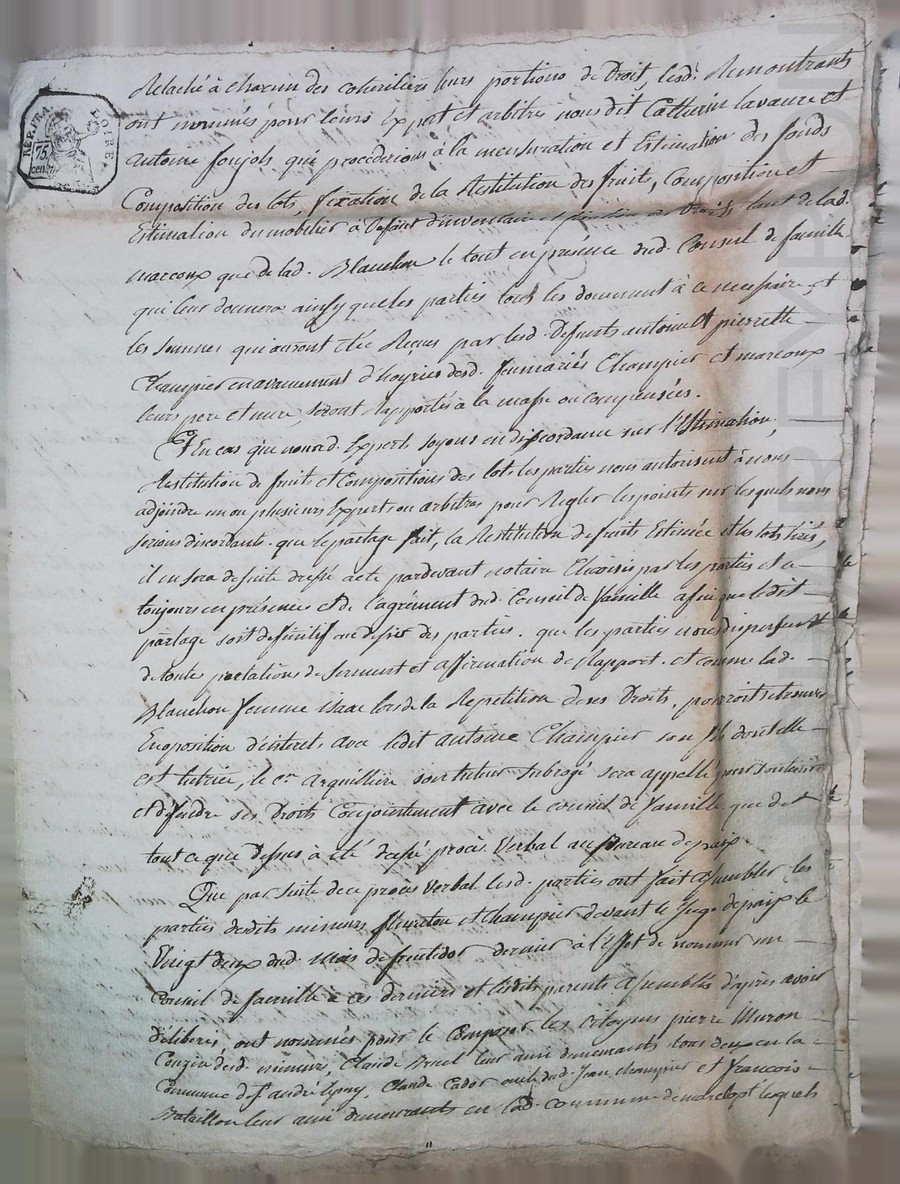 REP. FRA. LOIRE. 75 cent
Relaché à chacun des coheritiers leurs portions de Droit, lesd. Remontrants
ont nommés pour leurs Expert et arbitre nous dit Catherin lavaure et
antoine foujols qui procederions à la mensuration et Estimation des fonds
Composition des lots, fixation de la Restitution des fruits, Composition et
Estimation du mobilier à Defaut d'inventaire et fixation des Droits tant de lad.
marcoux que de lad. Blanchon le tout en présence dud. Conseil de famille
qui leur donnera ainsy que les parties tous les document à ce necessaire, et
les sommes qui auront été Reçues par lesd. Defunts antoine et pierrette
Champier en avancement d'hoyries desd. feu mariés Champier et marcoux
leurs pere et mere, seront Rapportés à la masse ou compensées.
Et en cas que nousd. Experts soyons en discordance sur l'Estimation,
Restitution de fruits et Compositions des lots les parties nous autorisent à nous
adjoindre un ou plusieurs Experts ou arbitres pour Regler les points sur lesquels nous
serions discordants. que le partage fait, la Restitution de fruits Estimée et les lots tirés,
il en sera de suite dressé acte pardevant notaire Choisis par les parties et
toujours en présence et de l'agrément dud. Conseil de famille afin que ledit
partage soit definitif au desir des parties. que les parties nous dispensent
de toute prestation de serment et affirmation de Rapport. et comme lad.
Blanchon femme isaac lors de la Repetition de ses Droits, pourroit se trouver
En oposition d'interets avec ledit antoine Champier son fils dont elle
est tutrice, le cen Arquilliere son tuteur subrogé sera appellé pour soutenir
et defendre ses Droits Conjointement avec le conseil de famille que de
tout ce que Dessus à été dressé procès Verbal au Bureau de paix.
Que par suite de ce procès Verbal lesd. parties ont fait assembler les
parties desdits mineurs fleuraton et Champier devant le Juge de paix le
Vingt deux dud. mois de fructidor dernier à l'effet de nommer un
Conseil de famille à ces derniers et lesdits parents assemblés d'après avoir
déliberés, ont nommés pour le Composer les Citoyens pierre Muron
Cousin desd. mineurs, Claude Bruel leur ami demeurants tous deux en la
Commune de st andré Commune, Claude Cador oncle dud. Jean champier et francois
Bataillon leur ami demeurants en lad. commune de lesquels